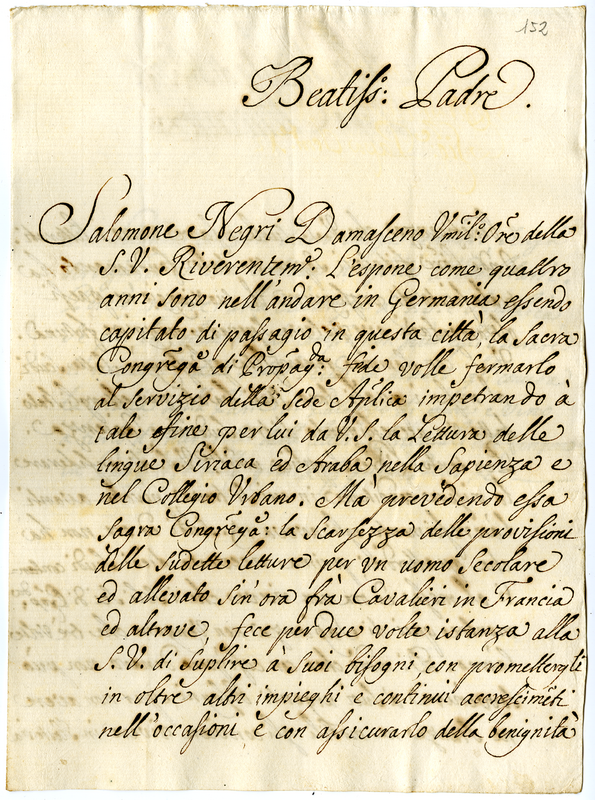 152
Beatiss: Padre.
Salomone Negri Damasceno Vmil: Ore della
S. V. Riverentem: L'espone come quattro
anni sono nell'andare in Germania essendo
capitato di passagio in questa città, la Sacra
Congrega di Propagda: fide volle fermarlo
al servizio della Sede Aplica impetrando à
tale efine per lui da V. S. la Lettura delle
lingue Siriaca ed Araba nella Sapienza e
nel Collegio Vrbano. Mà prevedendo essa
Sagra Congrega: la scarsezza delle provisioni
delle sudette letture per vn uomo Secolare
ed allevato sin'ora frà Cavalieri in Francia
ed altrove, fece per due volte istanza alla
S. V. di suplire à suoi bisogni con promettergli
in oltre altri impieghi e continui accrescimti
nell'occasioni, e con assicurarlo della benignità